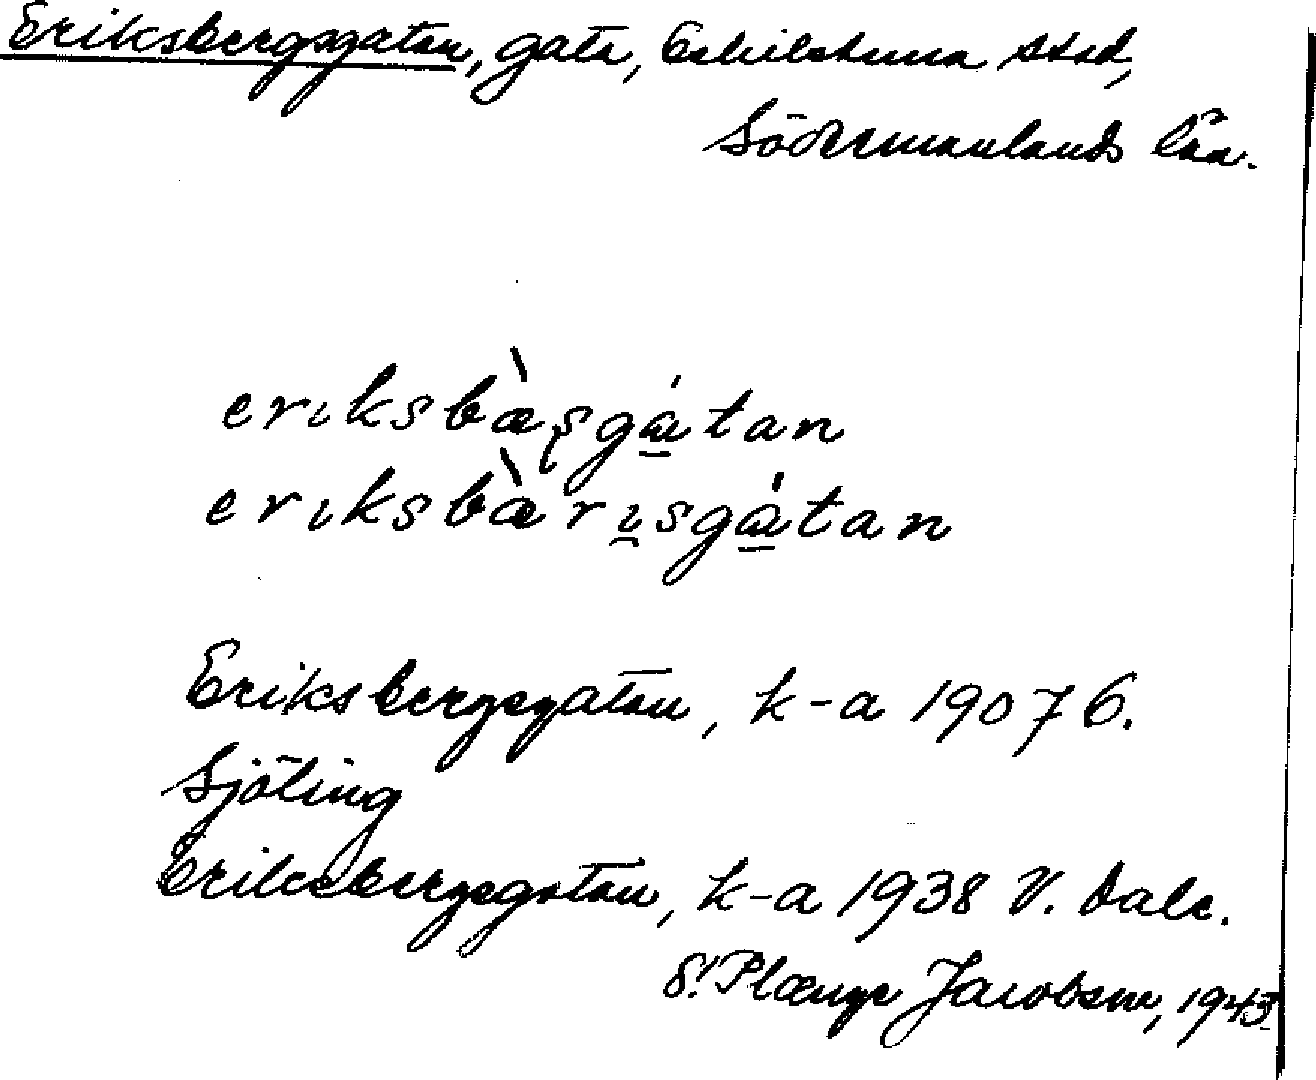 Eriksbergsgatan, gata, Eskilstuna stad,
Södermanlands län.
eriksbæ̀ʂgátan
eriksbæ̀risgátan
Eriksbergsgatan, k-a 1907 G.
Sjöling
Eriksbergsgatan, k-a 1938 V. Dale.
S. Plænge Jacobsen, 1943